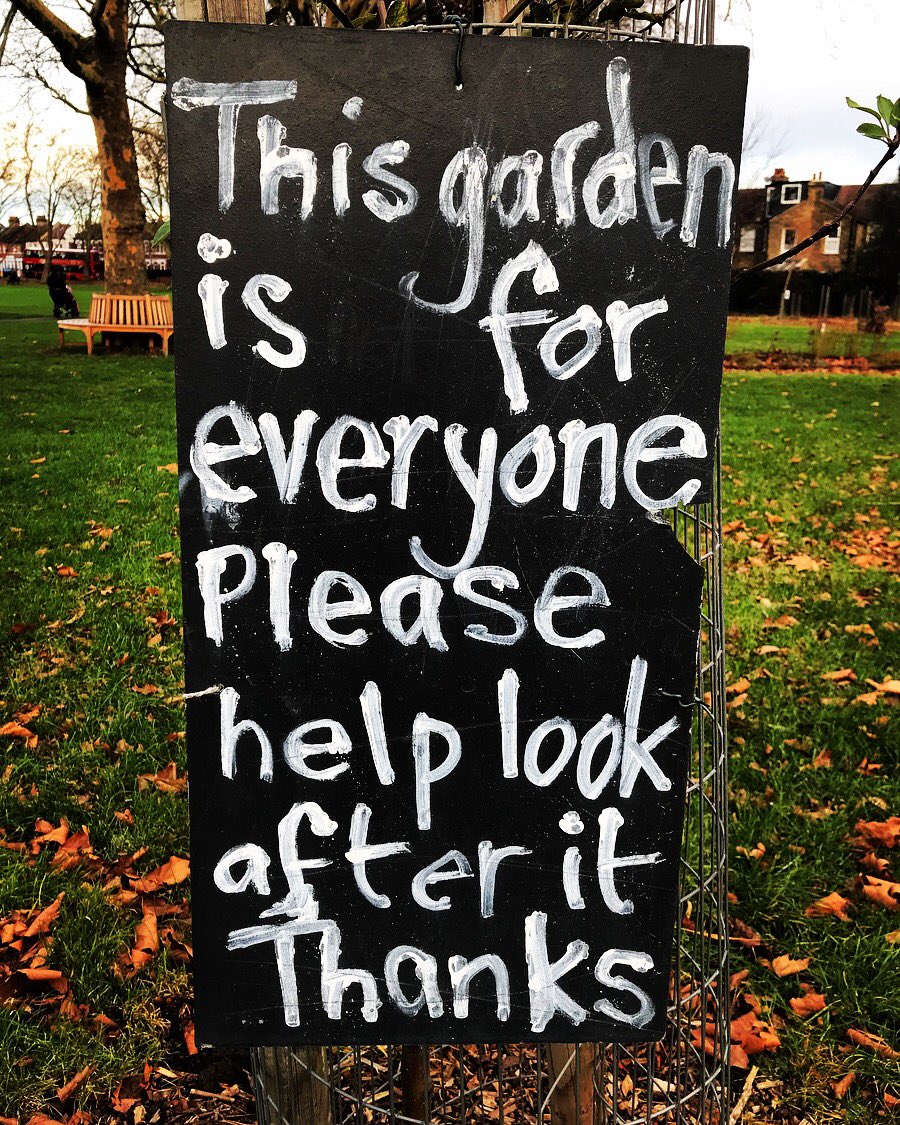 This garden
is for
everyone
Please
help look
after it
Thanks